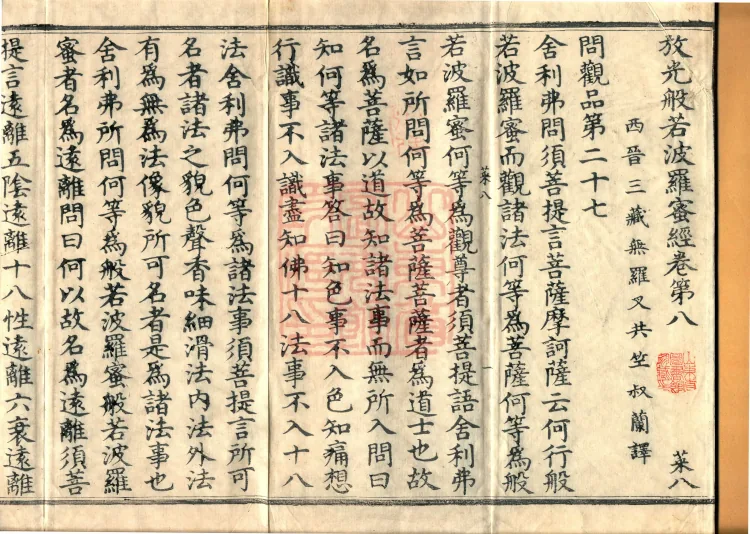 放光般若波羅蜜經卷第八 菜八
西晉三藏無羅叉共竺叔蘭譯
問觀品第二十七
舍利弗問須菩提言菩薩摩訶薩云何行般
若波羅蜜而觀諸法何等為菩薩何等為般
菜八
若波羅蜜何等為觀尊者須菩提語舍利弗
言如所問何等為菩薩菩薩者為道士也故
名為菩薩以道故知諸法事而無所入問曰
知何等諸法事答曰知色事不入色知痛想
行識事不入識盡知佛十八法事不入十八
法舍利弗問何等為諸法事須菩提言所可
名者諸法之貌色聲香味細滑法內法外法
有為無為法像貌所可名者是為諸法事也
舍利弗所問何等為般若波羅蜜般若波羅
蜜者名為遠離問曰何以故名為遠離須菩
提言遠離五陰遠離十八性遠離六衰遠離